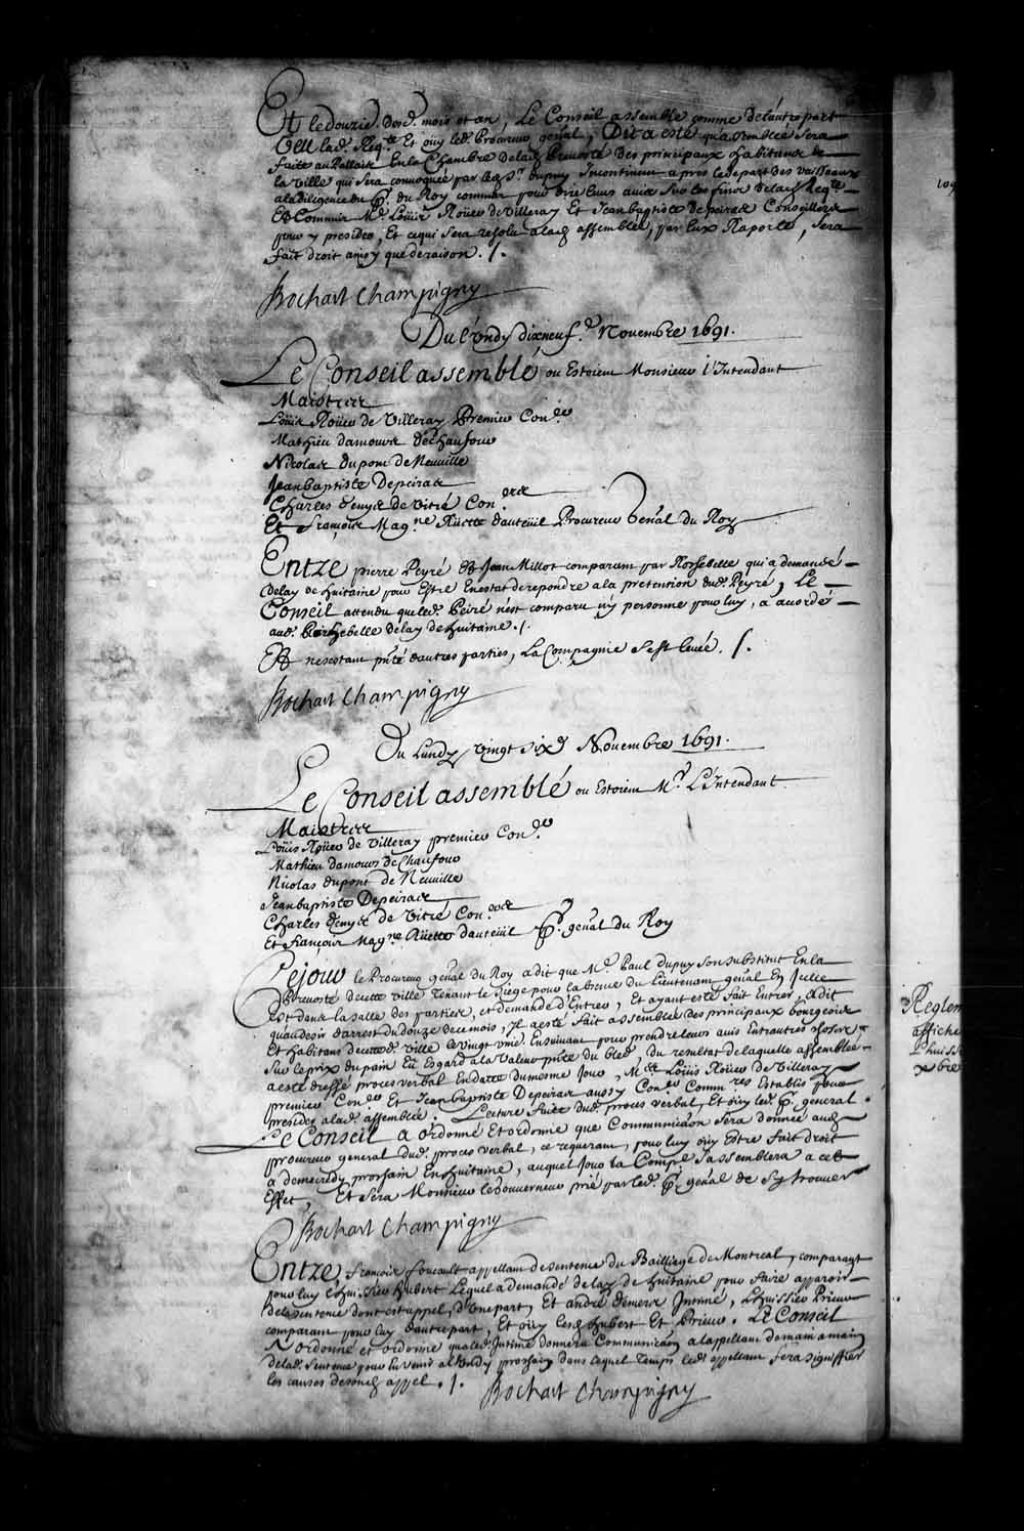 Et le douzie. desd. mois et an, Le Conseil assemblé comme delautre part
Veu lad. Reqte Et ouy led. Procureur genal, Dit a esté qu'assemblée sera
faite au Pallais Enla Chambre delad. Prevosté Des principaux habitans de
la ville qui sera convoquée par led. Sr. dupuy Incontinent apres le depart des vaisseaux
aladiligence du P. du Roy commis pour dire leurs avis sur les fins delad. Reqte
Et Commis Mes. Loüis Roüer de Villeray Et Jean baptiste depeiras Conseillers
pour y presider, Et cequi sera resolu alad. assemblée, par Eux Raporté, sera
fait droit ainsy que de raison. /.
Bochart Champigny
Du Lundy dixneuf.e Novembre 1691.
Le Conseil assemblé ou Estoient Monsieur L'Intendant
Maistres
Loüis Roüer de Villeray Premier Coner
Mathieu damours deschaufour
Nicolas dupont de Neuville
Jean baptiste Depeiras
Charles denys de Vitré Coners
Et françois Magne Rüette dauteüil Procureur Genal du Roy
Entre pierre Peyré Et Jean Millot comparant par Rosebelle qui a demandé
delay de huitaine pour Estre Enestat de repondre a la pretention dud. Peyré, Le
Conseil attendu queled. Peiré n'est comparu n'y personne pour luy, a acordé
aud. Rochebelle delay de huitaine. /.
Et nesestant pnté dautres parties, La Compagnie Sest levée. /.
Bochart Champigny
Du Lundy vingt sixe. Novembre 1691.
Le Conseil assemblé ou Estoient Mr. L'Intendant
Maistres
Loüis Roüer de Villeray premier Coner
Mathieu damours deChaufour
Nicolas dupont de Neuville
Jean baptiste Depeiras
Charles denys de Vitré Coners
Et françois Magne Rüette dauteüil P. genal du Roy
Cejour le Procureur genal du Roy adit que Me. Paul dupuy son substitut Enla
Prevosté decette ville tenant le siege pour labsence du Lieutenant genal En Icelle
est dans la salle des parties, et demande d'Entrer, Et ayant esté fait Entrer, adit
quaudesir darrest dudouze decemois, Il aesté fait assemblée des principaux bourgeois
Et habitans decetted. ville Le vingt une. Ensuivant pour prendre leurs avis Entrautres choses
sur le prix du pain Eu Esgard a la Valeur pnte du bled, du resultat delaquelle assemblée
aesté dressé proces verbal Endatte dumesme Jour, Mes. Loüis Roüer de Villeray
premier Coner Et Jean baptiste Depeiras aussy Coner Commres Establis pour
presider alad. assemblée. Lecture faite dud. proces verbal, Et ouy led. P. general.
Le Conseil a ordonné Et ordonne que Communicaon sera donnée aud.
procureur general dud. proces verbal, ce requerant, pour luy ouy Estre fait droit
a demercredy prochain En huitaine, auquel Jour la Compe s'assemblera a cet
Effet, Et sera Monsieur le Gouverneur prié par led. P. genal de s'y trouver
Bochart Champigny
Entre françois foucault appellant de sentence du Bailliage de Montreal, comparant
pour luy Lhuissier hubert Lequel a demandé delay de huitaine pour faire apparoir
delasentence dont est appel, d'Une part, Et andré demers Intimé, Lhuissier Prieur
comparant pour luy dautre part, Et ouy lesd. hubert Et Prieur. Le Conseil
A ordonné et ordonne queled. Intimé donnera Communicaon a lappellant demain amain
delad. sentence pour luvenir alundy prochain dans lequel temps led. appellant fera signiffier
les causes desond. appel. /.
Bochart Champigny
Reglem
affiche
L'huiss